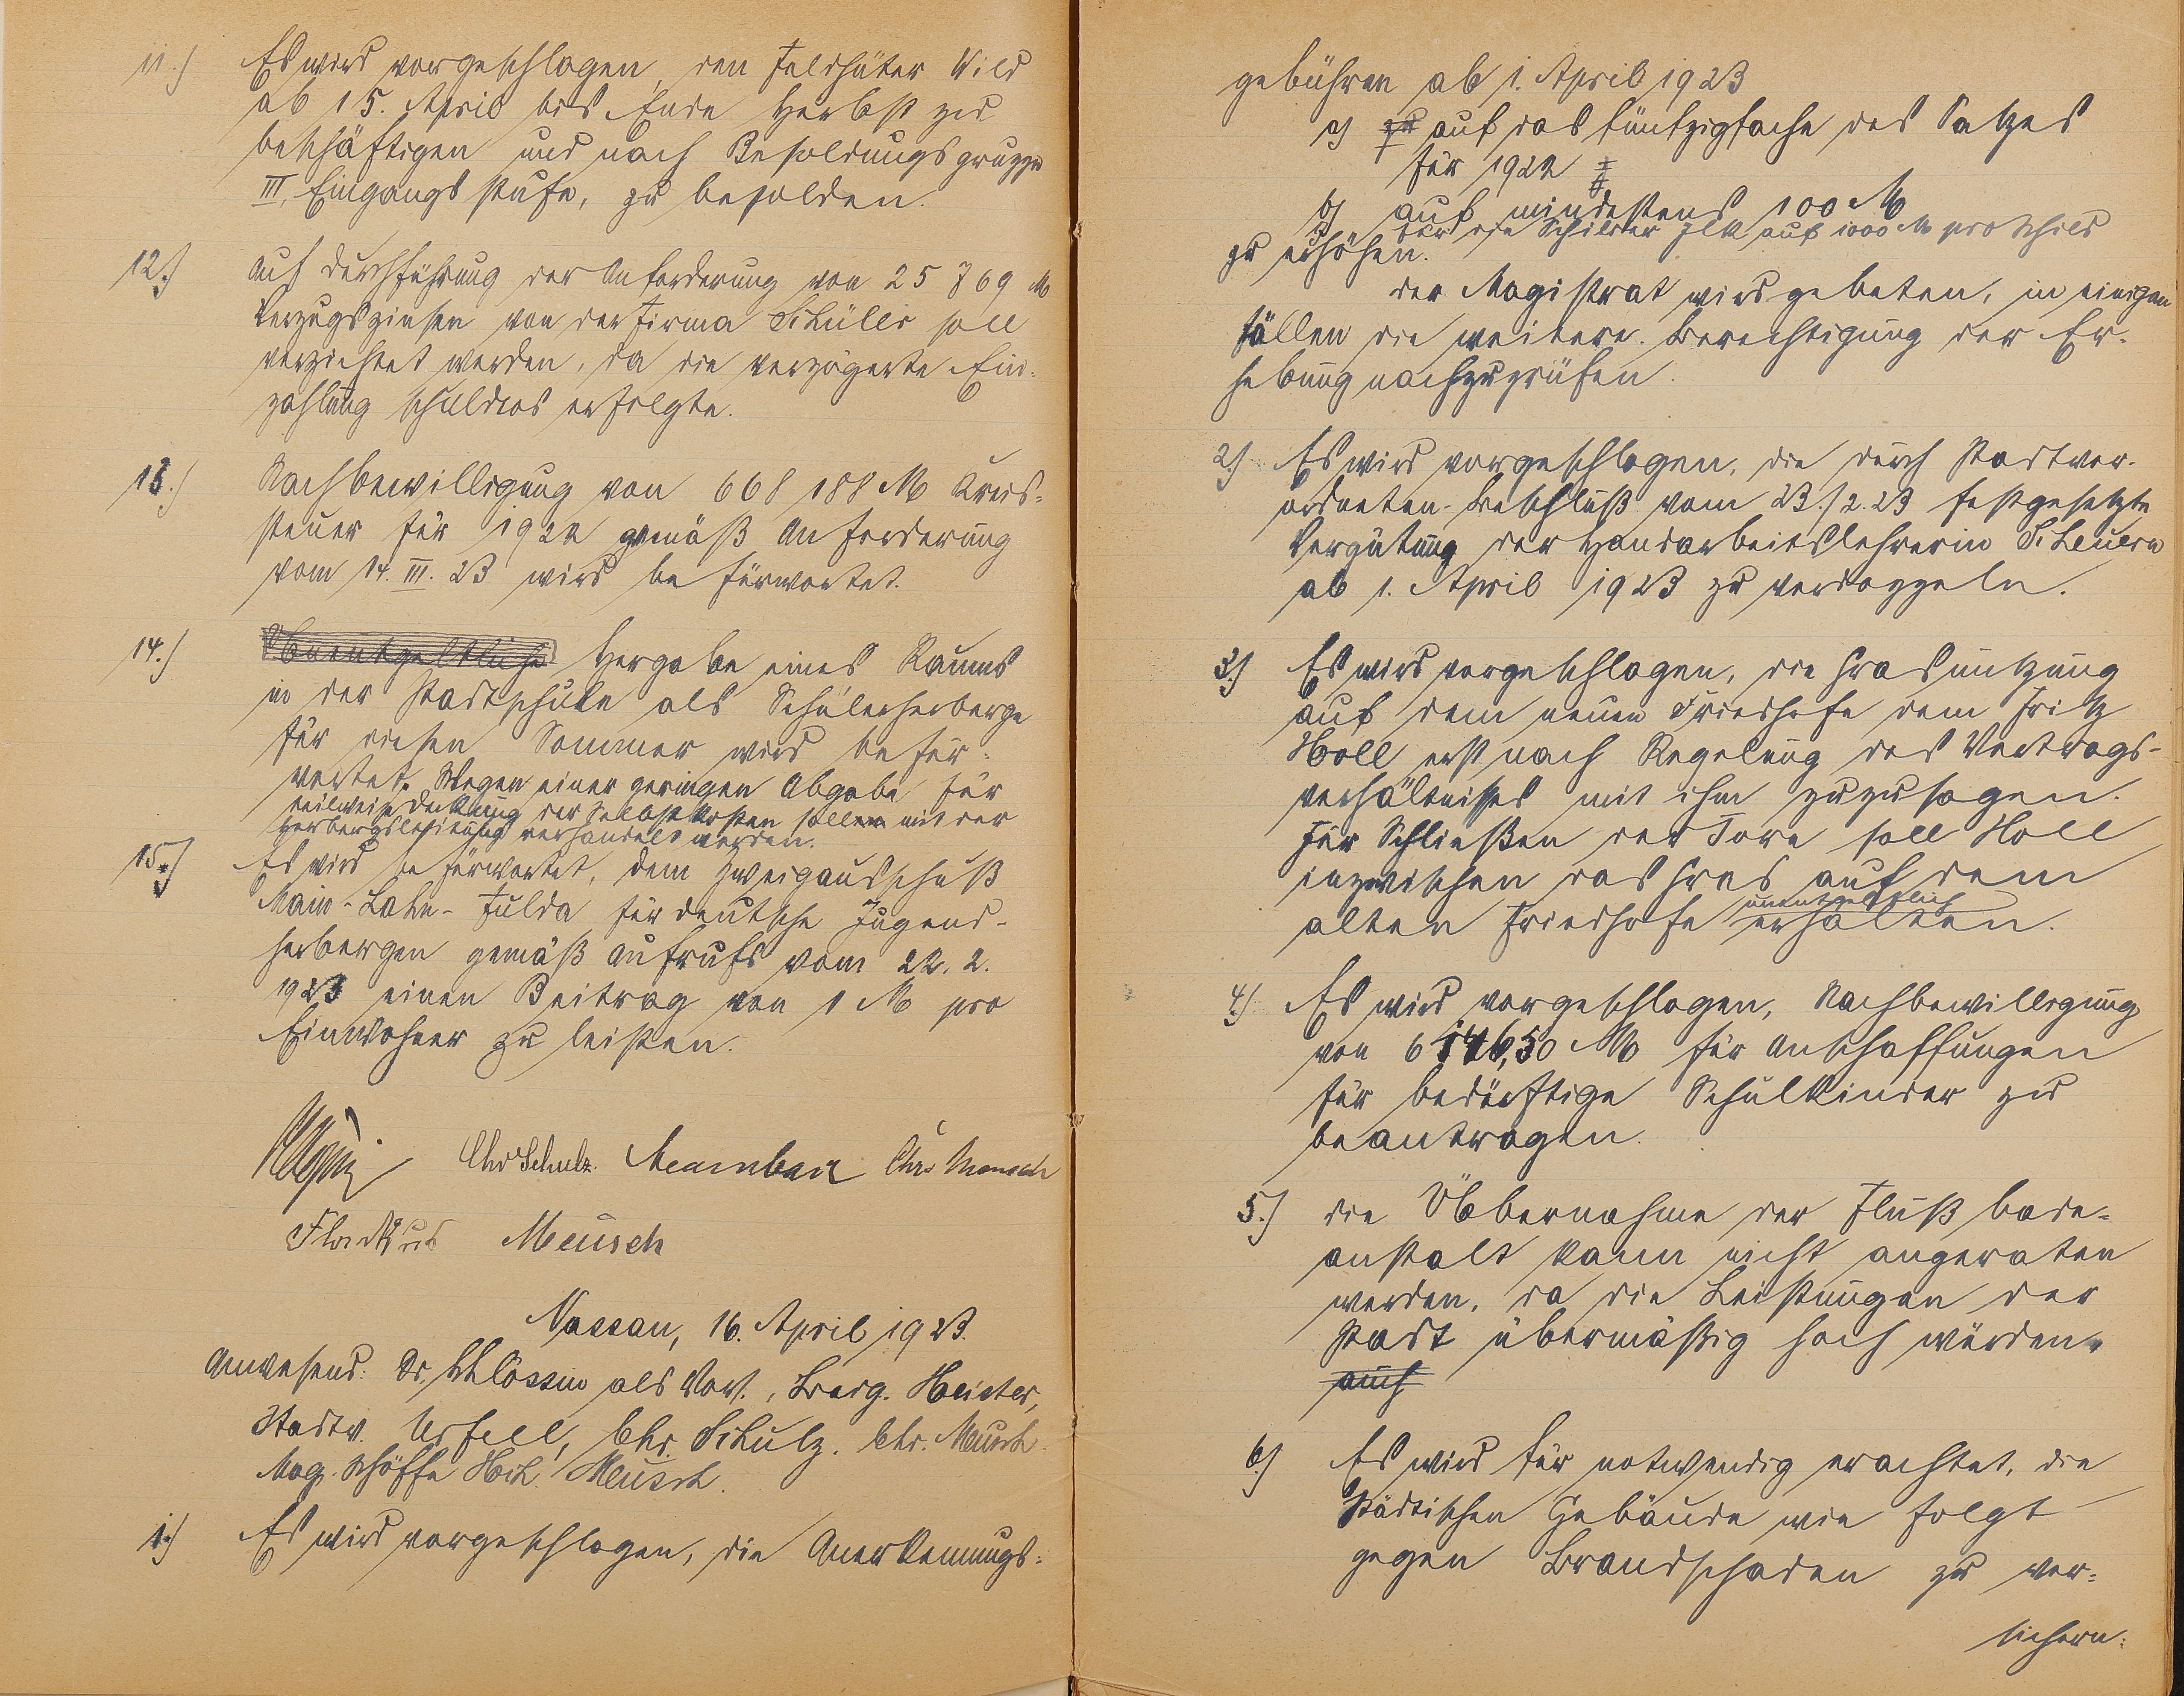 11.) Es wird vorgeschlagen, den Feldhüter Wild
ab 15. April bis Ende Herbst zu
beschäftigen und nach Besoldungsgruppe
III, Eingangsstufe, zu besolden.
12.) Auf Durchführung der Anforderung von 25 769 M
Verzugszinsen von der Firma Schüler soll
verzichtet werden, da die verzögerte Ein-
zahlung schuldlos erfolgte.
13.) Nachbewilligung von 668 188 M Kreis-
steuer für 1922 gemäß Anforderung
vom 14. III. 23 wird befürwortet.
14.) Hergabe eines Raums
in der Stadtschule als Schülerherberge
für diesen Sommer wird befür-
wortet. Wegen einer geringen Abgabe für
teilweise Deckung der Selbstkosten soll mit der
Herbergsleitung verhandelt werden.
15.) Es wird befürwortet, dem Zweigausschuß
Main-Lahn-Fulda für deutsche Jugend-
herbergen gemäß Aufrufs vom 22. 2.
1923 einen Beitrag von 1 M pro
Einwohner zu leisten.
Chr Schulz.
Meusch
Nassau, 16. April 1923.
Anwesend: Dr. Schlössin als Vors., Beig. Heister,
Stadtv. Urfell, Chr. Schulz. Chr. Meusch
Mag. Schöffe Hch. Meusch.
1.) Es wird vorgeschlagen, die Anerkennungs-
gebühren ab 1. April 1923
a) zu auf das fünfzigfache des Satzes
für 1922
b) auf mindestens 100 M
der die Schilder auf 1000 M pro Schild
zu erhöhen.
Der Magistrat wird gebeten, in einigen
Fällen die weitere Berechtigung der Er-
hebung nachzuprüfen.
2.) Es wird vorgeschlagen, die durch Stadtver-
ordneten-Beschluß vom 23./2.23 festgesetzte
Vergütung der Handarbeitslehrerin Scheuern
ab 1. April 1923 zu verdoppeln.
3.) Es wird vorgeschlagen, die Grasnutzung
auf dem neuen Friedhofe dem Fritz
Holl erst nach Regelung des Vertrags-
verhältnisses mit ihm zuzusagen.
Für Schließen der Tore soll Holl
inzwischen das Gras auf dem
unentgeltlich
alten Friedhofe erhalten.
4.) Es wird vorgeschlagen, Nachbewilligung
von M für Anschaffungen
für bedürftige Schulkinder zu
beantragen.
5.) Die Übernahme der Flußbade-
anstalt kann nicht angeraten
werden, da die Leistungen der
Stadt übermäßig hoch würden.
auch
6.) Es wird für notwendig erachtet, die
städtischen Gebäude wie folgt
gegen Brandschaden zu ver-
sichern: